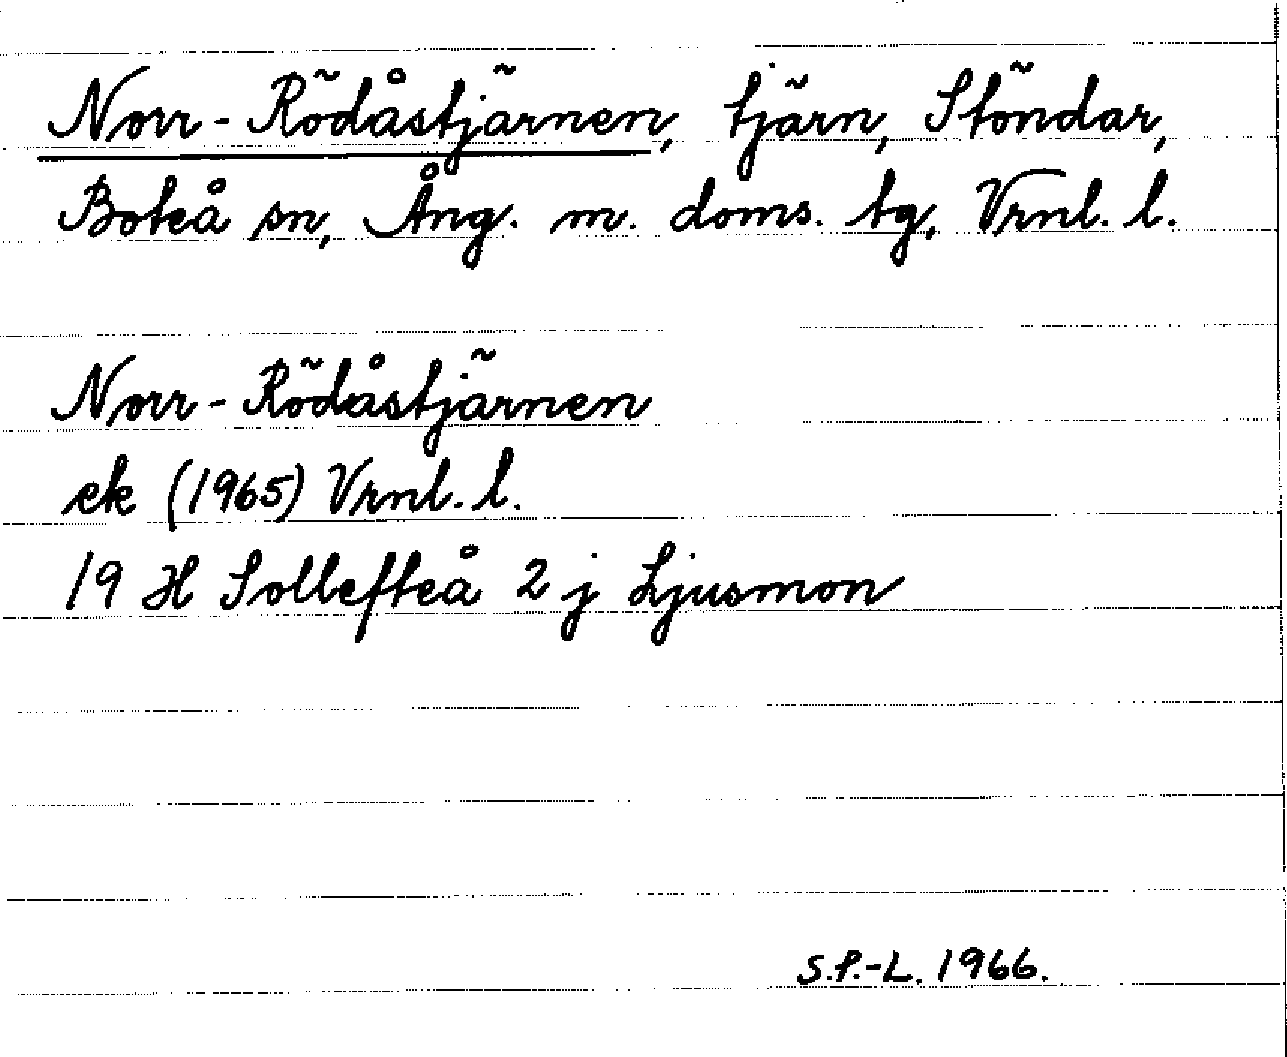 Norr-Rödåstjärnen, tjärn, Stöndar,
Boteå sn, Ång. m. doms. tg, Vrnl. l.
Norr-Rödåstjärnen
ek (1965) Vrnl. l.
19 H Sollefteå 2 j Ljusmon
S.P.-L. 1966.